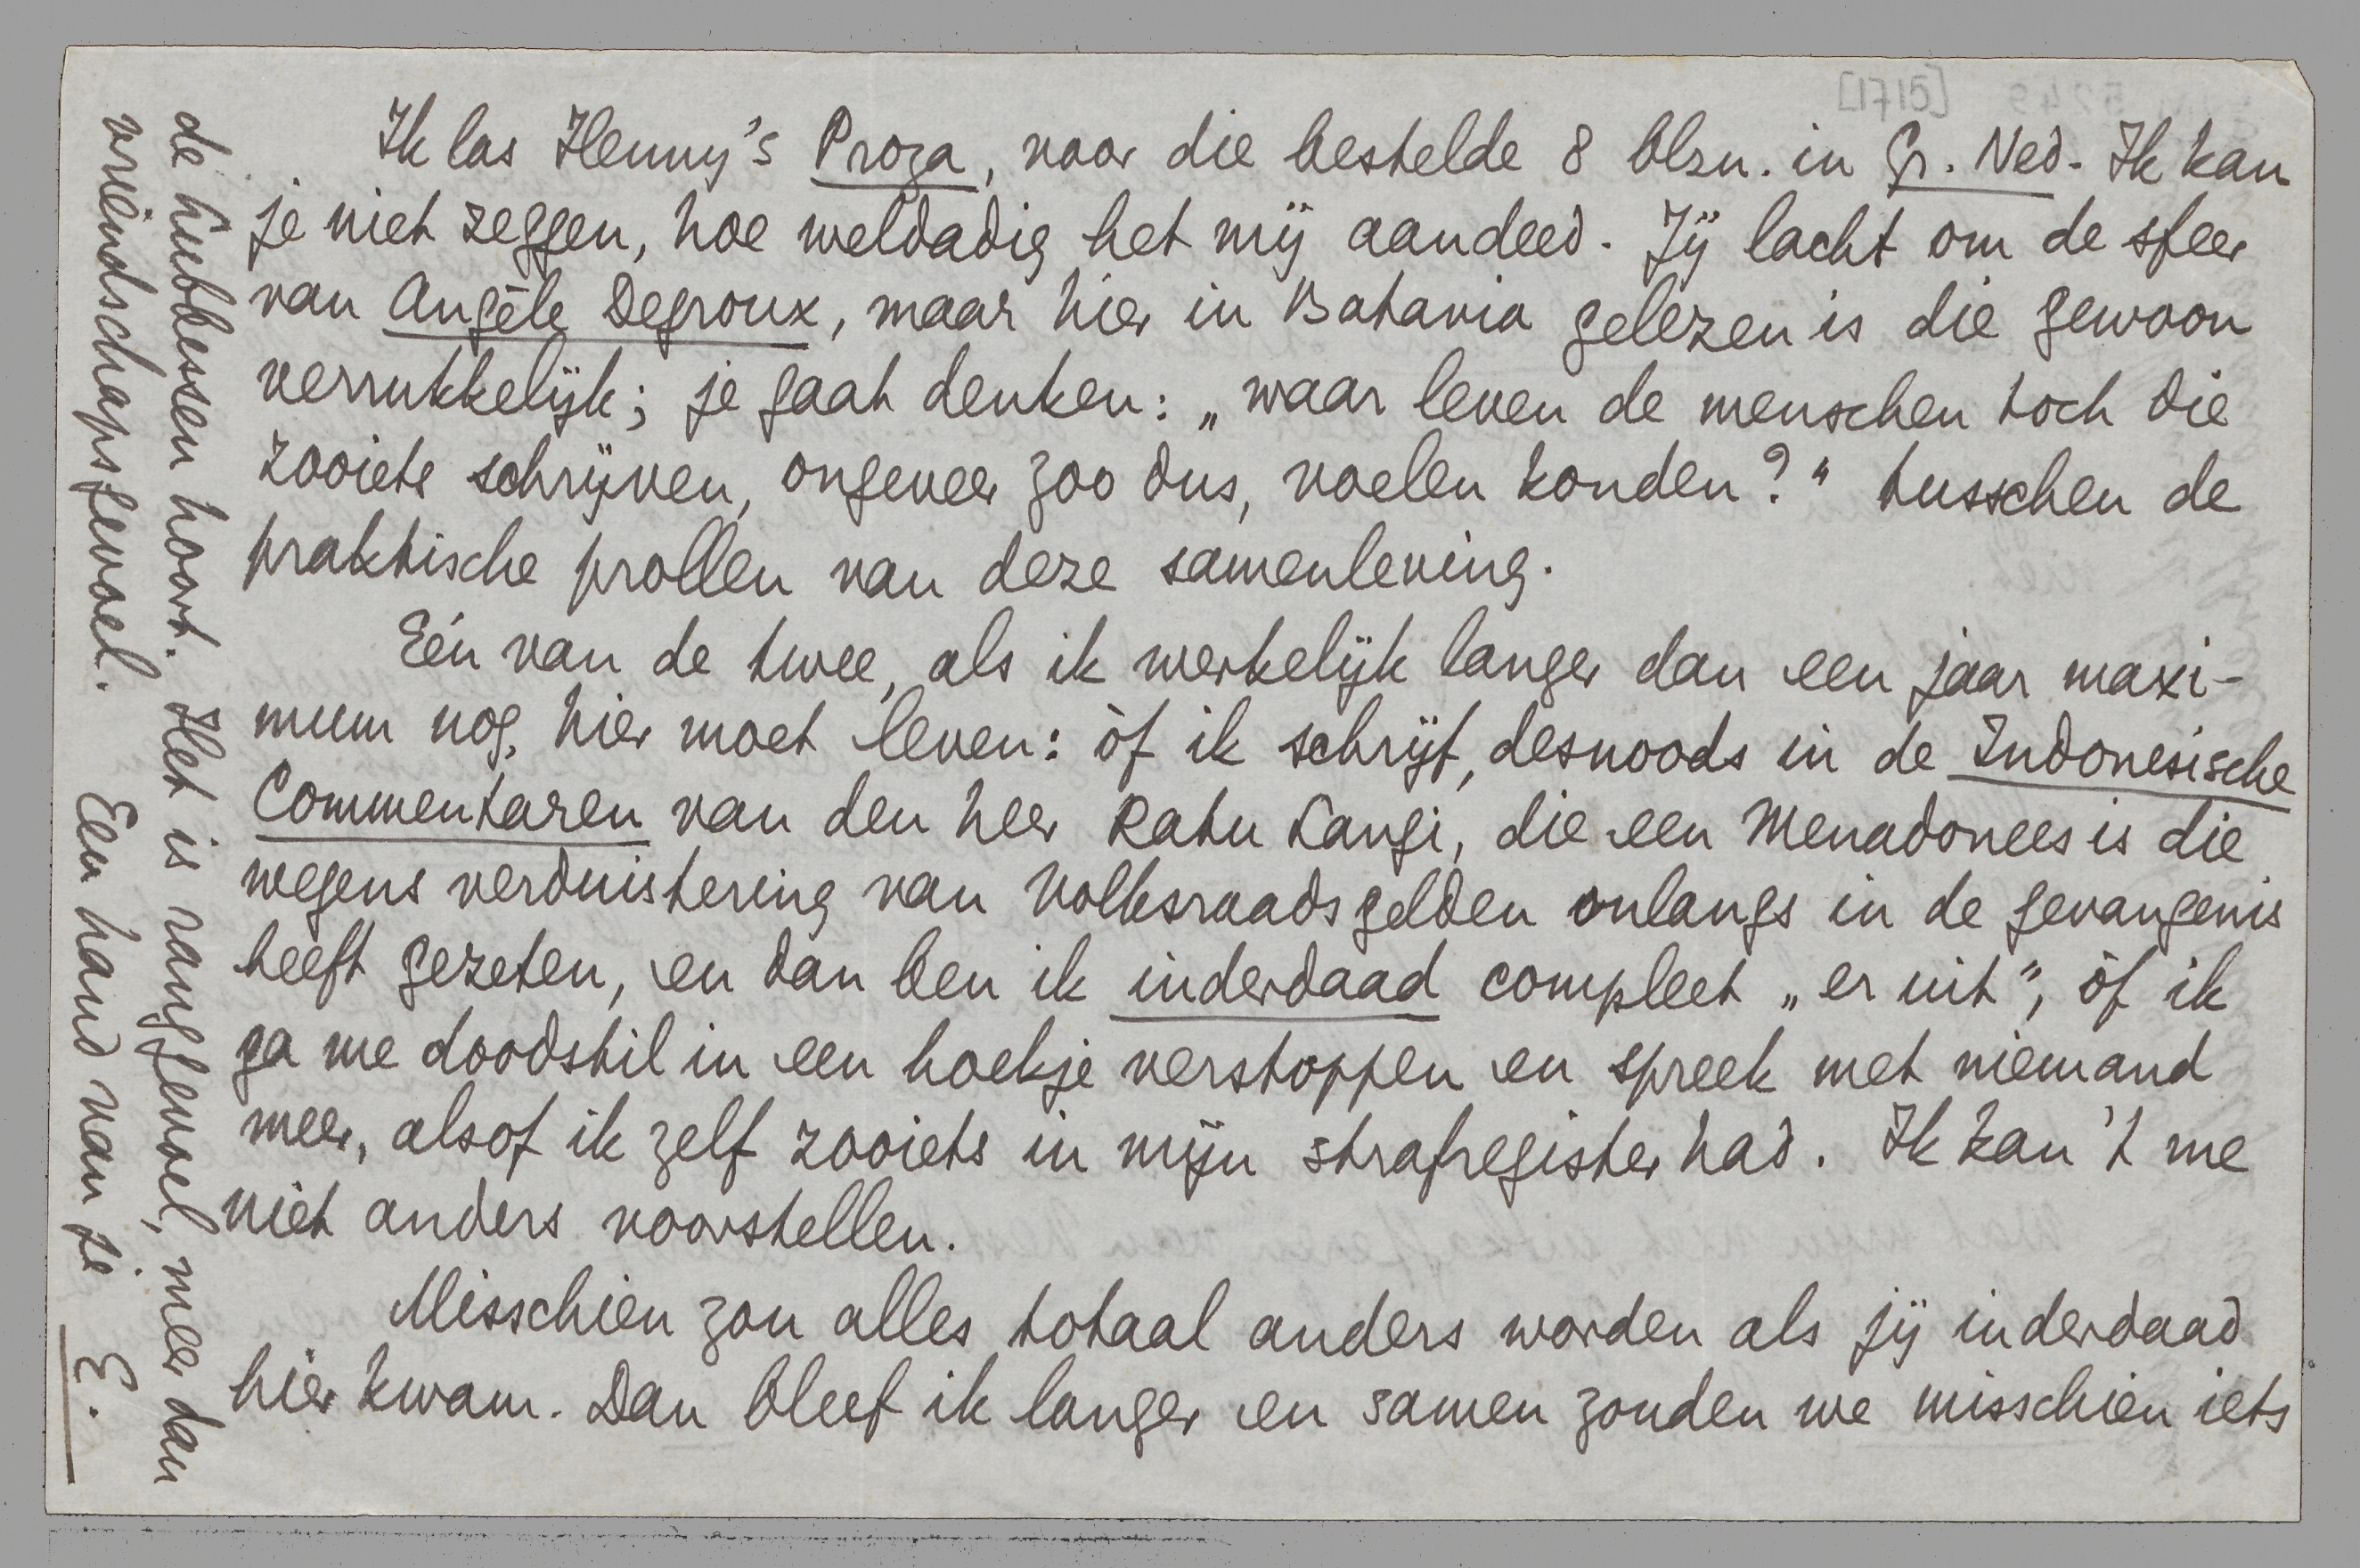 Ik las Henny's Proza, voor die bestelde 8 blzn. in Gr. Ned. Ik kan
je niet zeggen, hoe weldadig het mij aandeed. Jij lacht om de sfeer
van Angèle Degroux, maar hier in Batavia gelezen is die gewoon
verrukkelijk; je gaat denken: „waar leven de menschen toch die
zooiets schrijven, ongeveer zoo dus, voelen konden?" tusschen de
praktische prollen van deze samenleving.
Eén van de twee, als ik werkelijk langer dan een jaar maxi-
mum nog, hier moet leven: òf ik schrijf, desnoods in de Indonesische
Commentaren van den heer Ratu Langi, die een Menadonees is die
wegens verduistering van Volksraadsgelden onlangs in de gevangenis
heeft gezeten, en dan ben ik inderdaad compleet „er uit", òf ik
ga me doodstil in een hoekje verstoppen en spreek met niemand
meer, alsof ik zelf zooiets in mijn strafregister had. Ik kan 't me
niet anders voorstellen.
Misschien zou alles totaal anders worden als jij inderdaad
hier kwam. Dan bleef ik langer en samen zouden we misschien iets
de hubbessen hoort. Het is ranggevoel, meer dan
vriendschapsgevoel. Een hand van je E.
[1715]